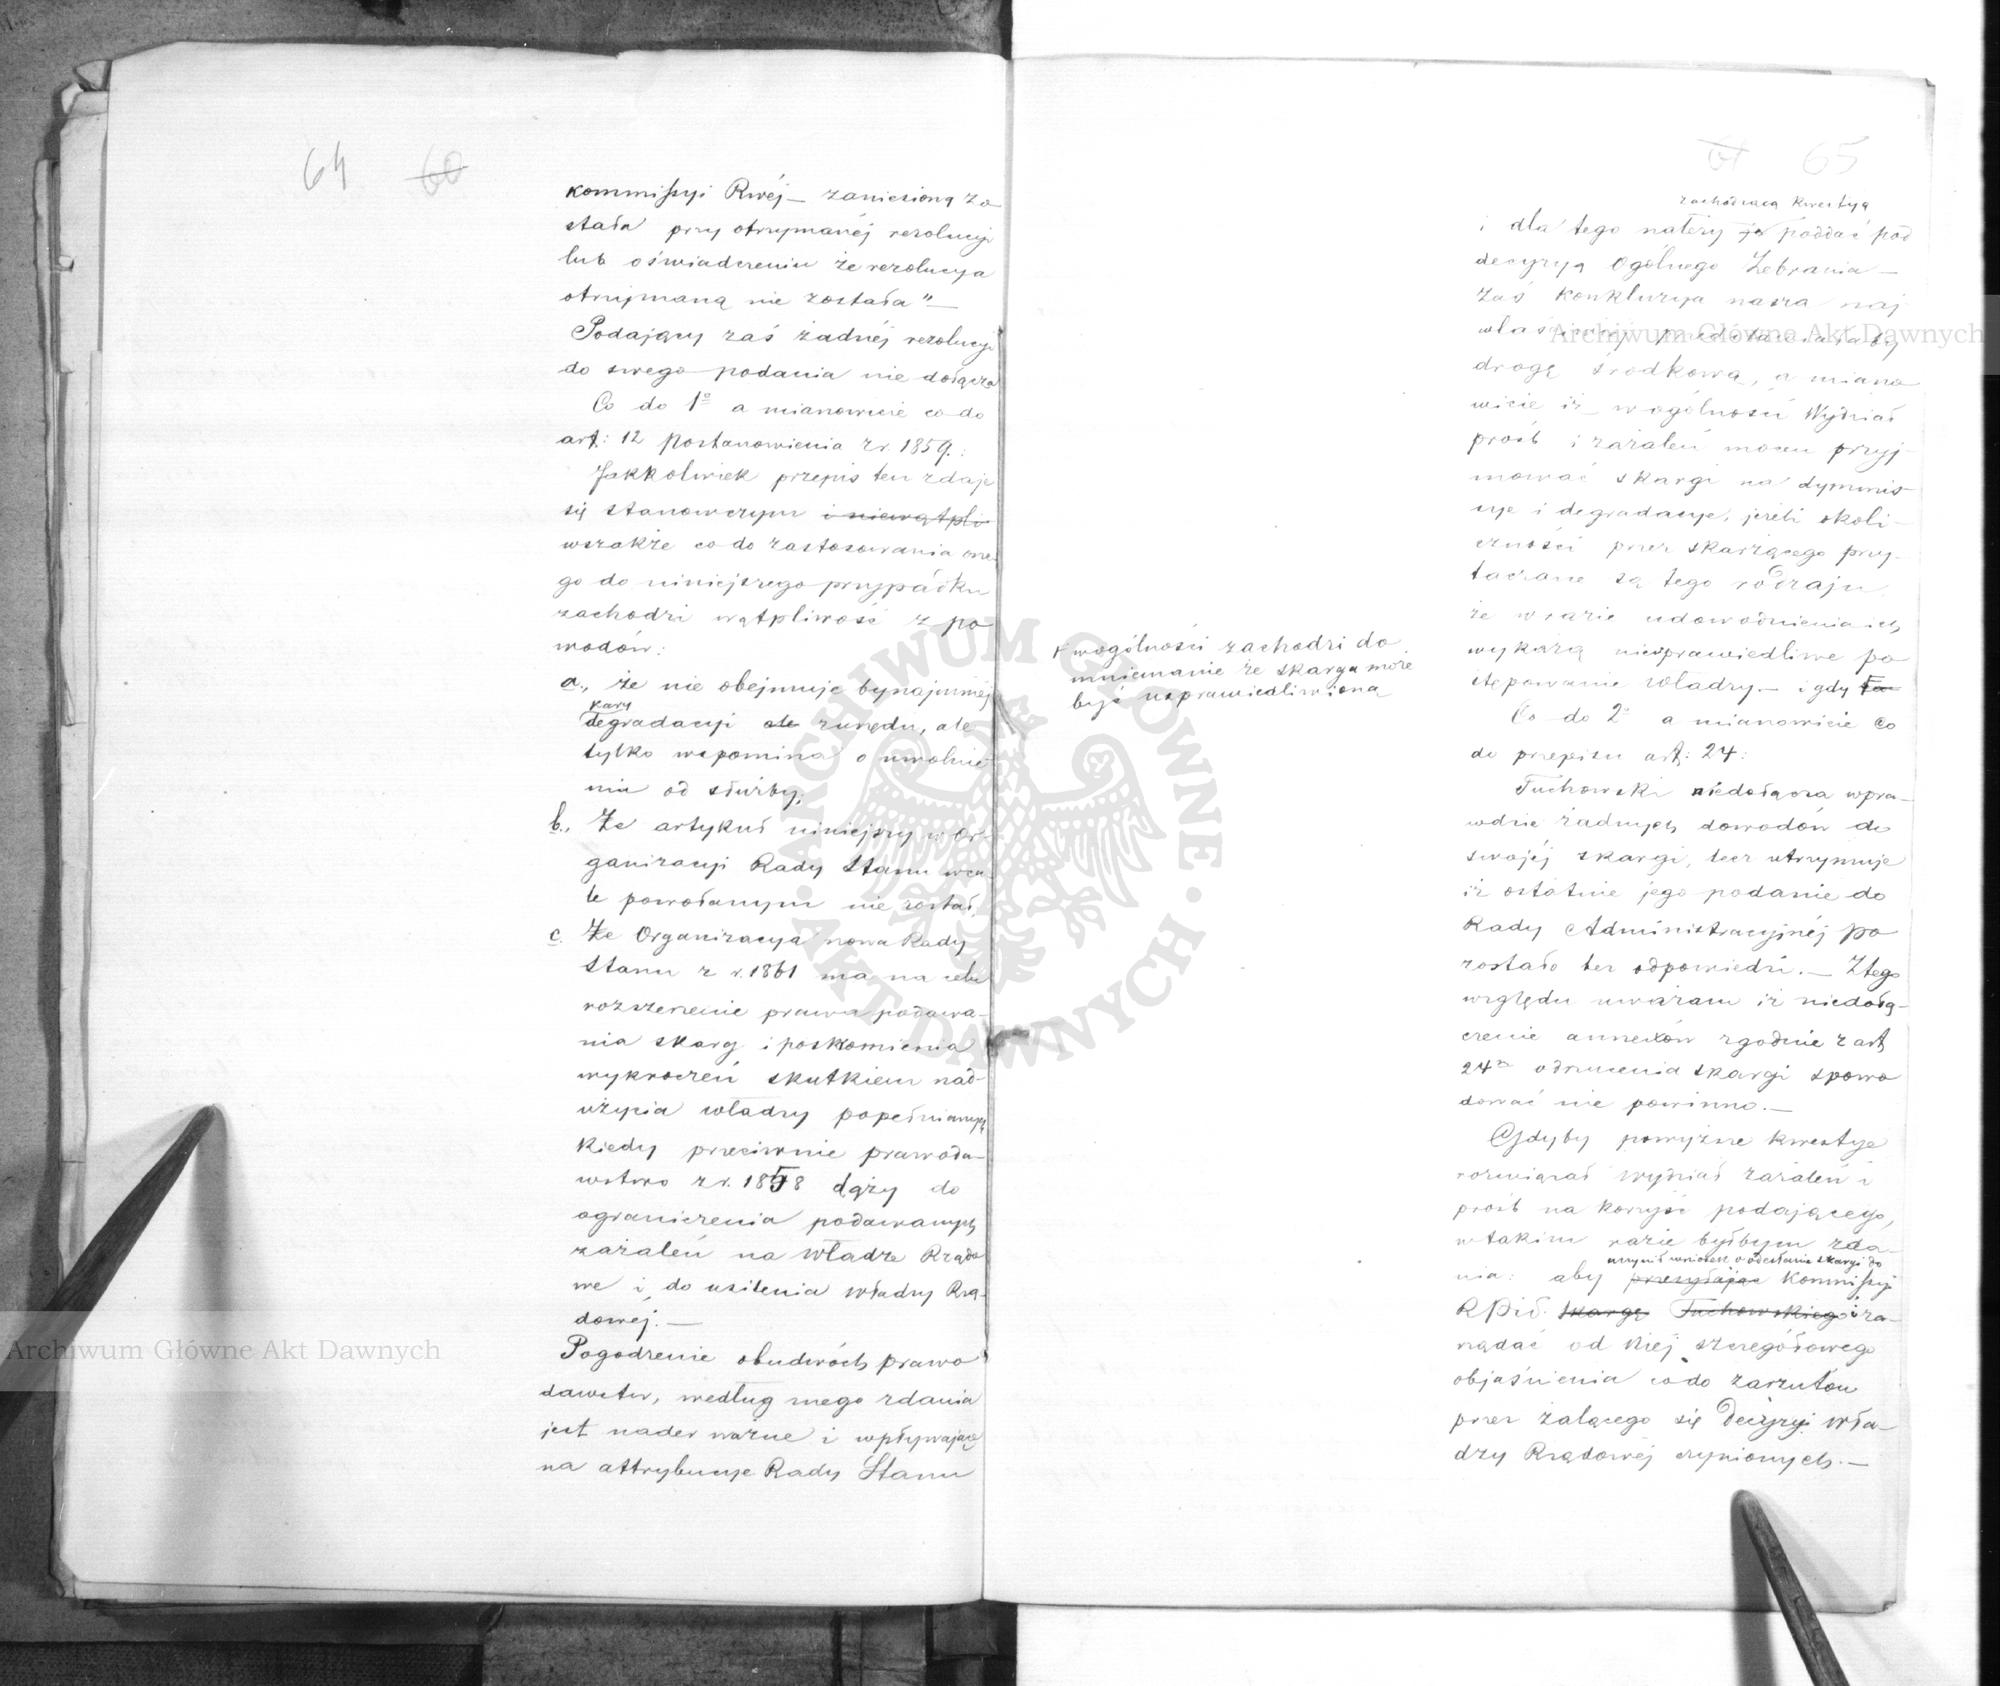 64 60
kommissyi Rwéj — zaniesioną zo
stała przy otrzymanéj rezolucyi
lub oświadczeniu że rezolucya
otrzymaną nie została" —
Podający zaś żadnéj rezolucyi
do swego podania nie dołącza
Co do 1º a mianowicie co do
art: 12 Postanowienia z r. 1859.:
Jakkolwiek przepis ten zdaje
się stanowczym i niewątpli
wszakże co do zastosowania one
go do niniejszego przypadku
zachodzi wątpliwość z po
wodów:
a., że nie obejmuje bynajmniéj
kary
degradacyi ale zurzędu, ale
tylko wspomina o uwolnie
niu od służby;
b., Że artykuł niniejszy w Or-
ganizacyi Rady Stanu wca
le powołanym nie został,
c. Że Organizacya nowa Rady
Stanu z r. 1861 ma na celu
rozszerzenie prawa podawa-
nia skarg i poskromienia
wykroczeń skutkiem nad-
użycia władzy popełnianych
kiedy przeciwnie prawoda-
wstwo z r. 1858 dąży do
ograniczenia podawanych
zażaleń na władze Rządo
we i do usilenia władzy Rzą-
dowéj. —
Pogodzenie obudwóch prawo
dawstw, według mego zdania
jest nader ważne i wpływające
na attrybucye Rady Stanu
w ogólności zachodzi do
mniemanie że skarga może
być usprawiedliwioną
61 65
zachodzącą kwestyą
i dla tego należy ją poddać pod
decyzyą Ogólnego Zebrania —
Zaś konkluzya nasza naj
właściwiéj przedstawiałaby
drogę środkową, a miano
wicie iż w ogólności Wydział
próśb i zażaleń mocen przyj-
mować skargi na dymmis
sye i degradacye, jeżeli okoli-
czności przez skarżącego przy-
taczane są tego rodzaju,
że w razie udowodnienia ich
wykażą niesprawiedliwe po
stępowanie władzy — i gdy ta
Co do 2º a mianowicie Co
do przepisu art: 24:
Tuchowski niedołącza wpra-
wdzie żadnych dowodów do
swojéj skargi, lecz utrzymuje
iż ostatnie jego podanie do
Rady Administracyjnéj po
zostało bez odpowiedzi. — Z tego
względu uważam iż niedołą-
czenie annexów zgodnie z art
24m odrzucenia skargi spowo
dować nie powinno. —
Gdyby powyższe kwestye
rozwiązał Wydział zażaleń i
próśb na korzyść podającego,
w takim razie byłbym zda-
uczynił wniosek o odesłanie skargi do
nia: aby przesyłając Kommissyi
RPiS. skargę Tuchowskiego i za-
rządać od Niej szczegółowego
objaśnienia co do zarzutów
przez żalącego się Decyzyi Wła-
dzy Rządowéj czynionych. —
Archiwum Główne Akt Dawnych
Archiwum Główne Akt Dawnych
ARCHIWUM GŁÓWNE AKT DAWNYCH